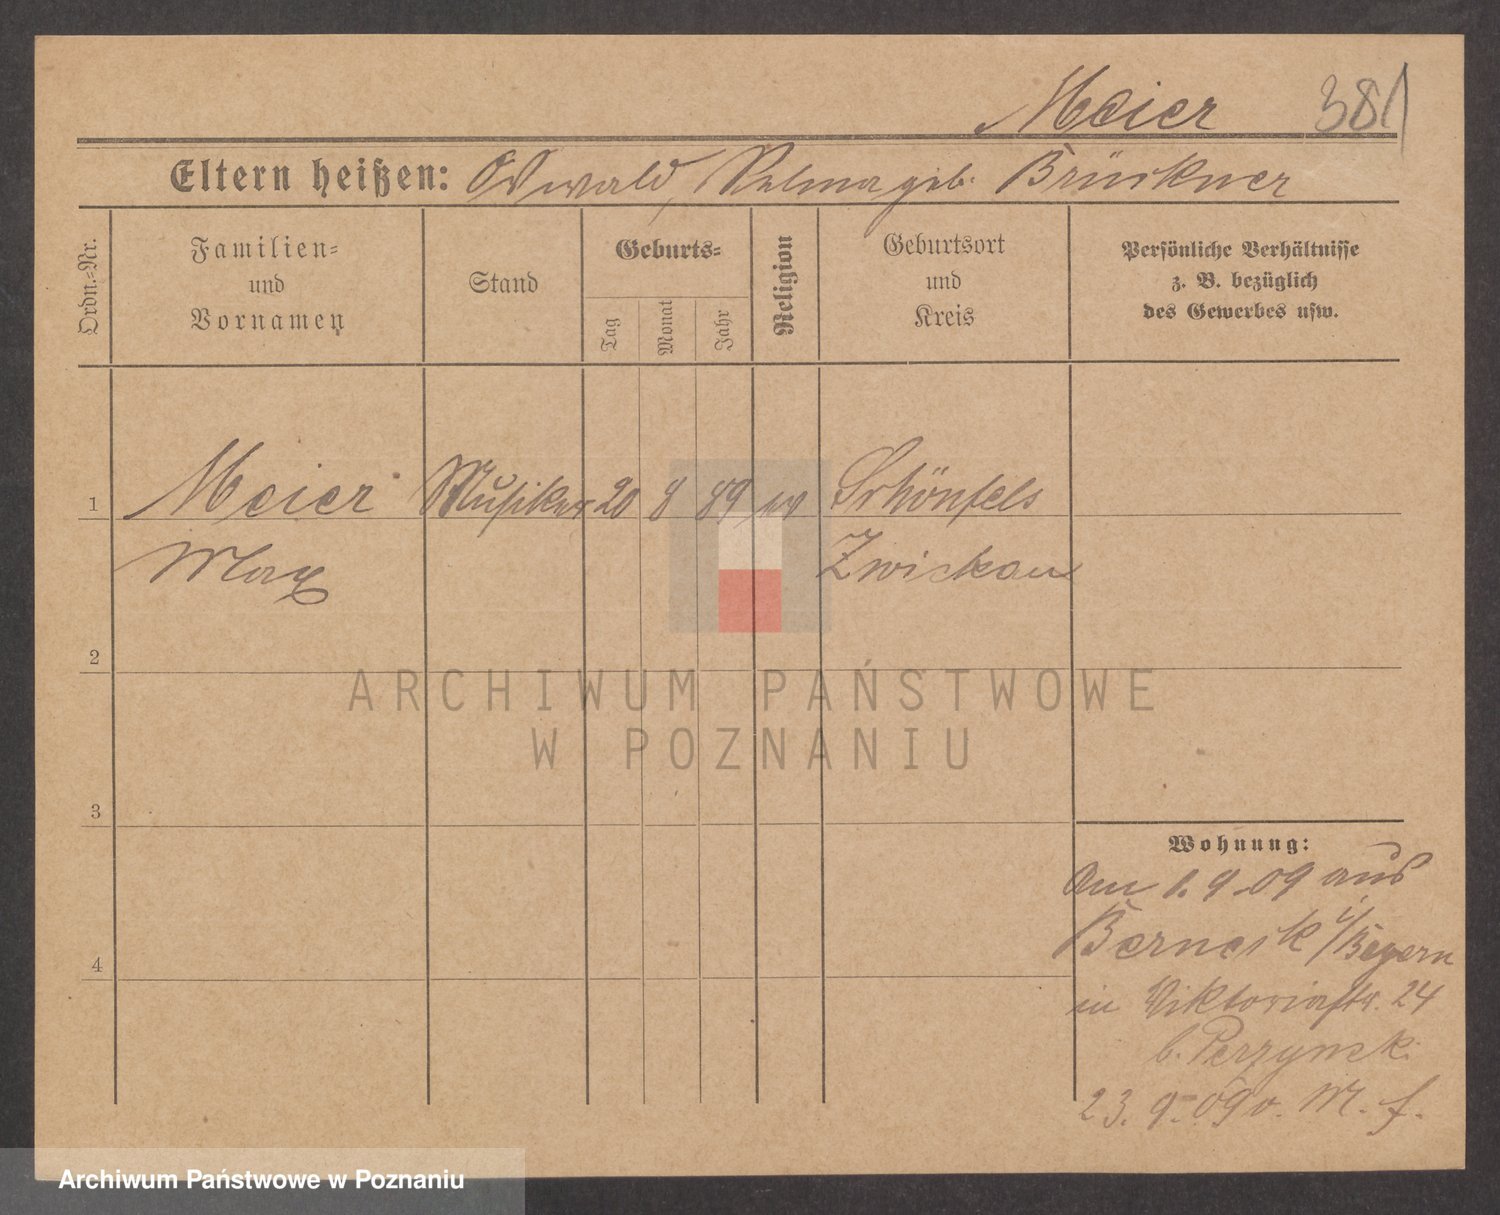 Meier 381
Eltern heißen: Oswald, Selma geb. Brückner
Ordn.-Nr.
Familien-
und
Vornamen
Stand
Geburts-
Tag
Monat
Jahr
Religion
Geburtsort
und
Kreis
Persönliche Verhältnisse
z. B. bezüglich
des Gewerbes usw.
1 Meier Musiker 20 8 89 ev Schönfels
Max Zwickau
2
ARCHIWUM PAŃSTWOWE
W POZNANIU
3
Wohnung:
Am 1.9.09 aus
Berneck i/Bayern
4
in Viktoriastr. 24
b. Perzynski
23. 9. 09 v. M. f.
Archiwum Państwowe w Poznaniu